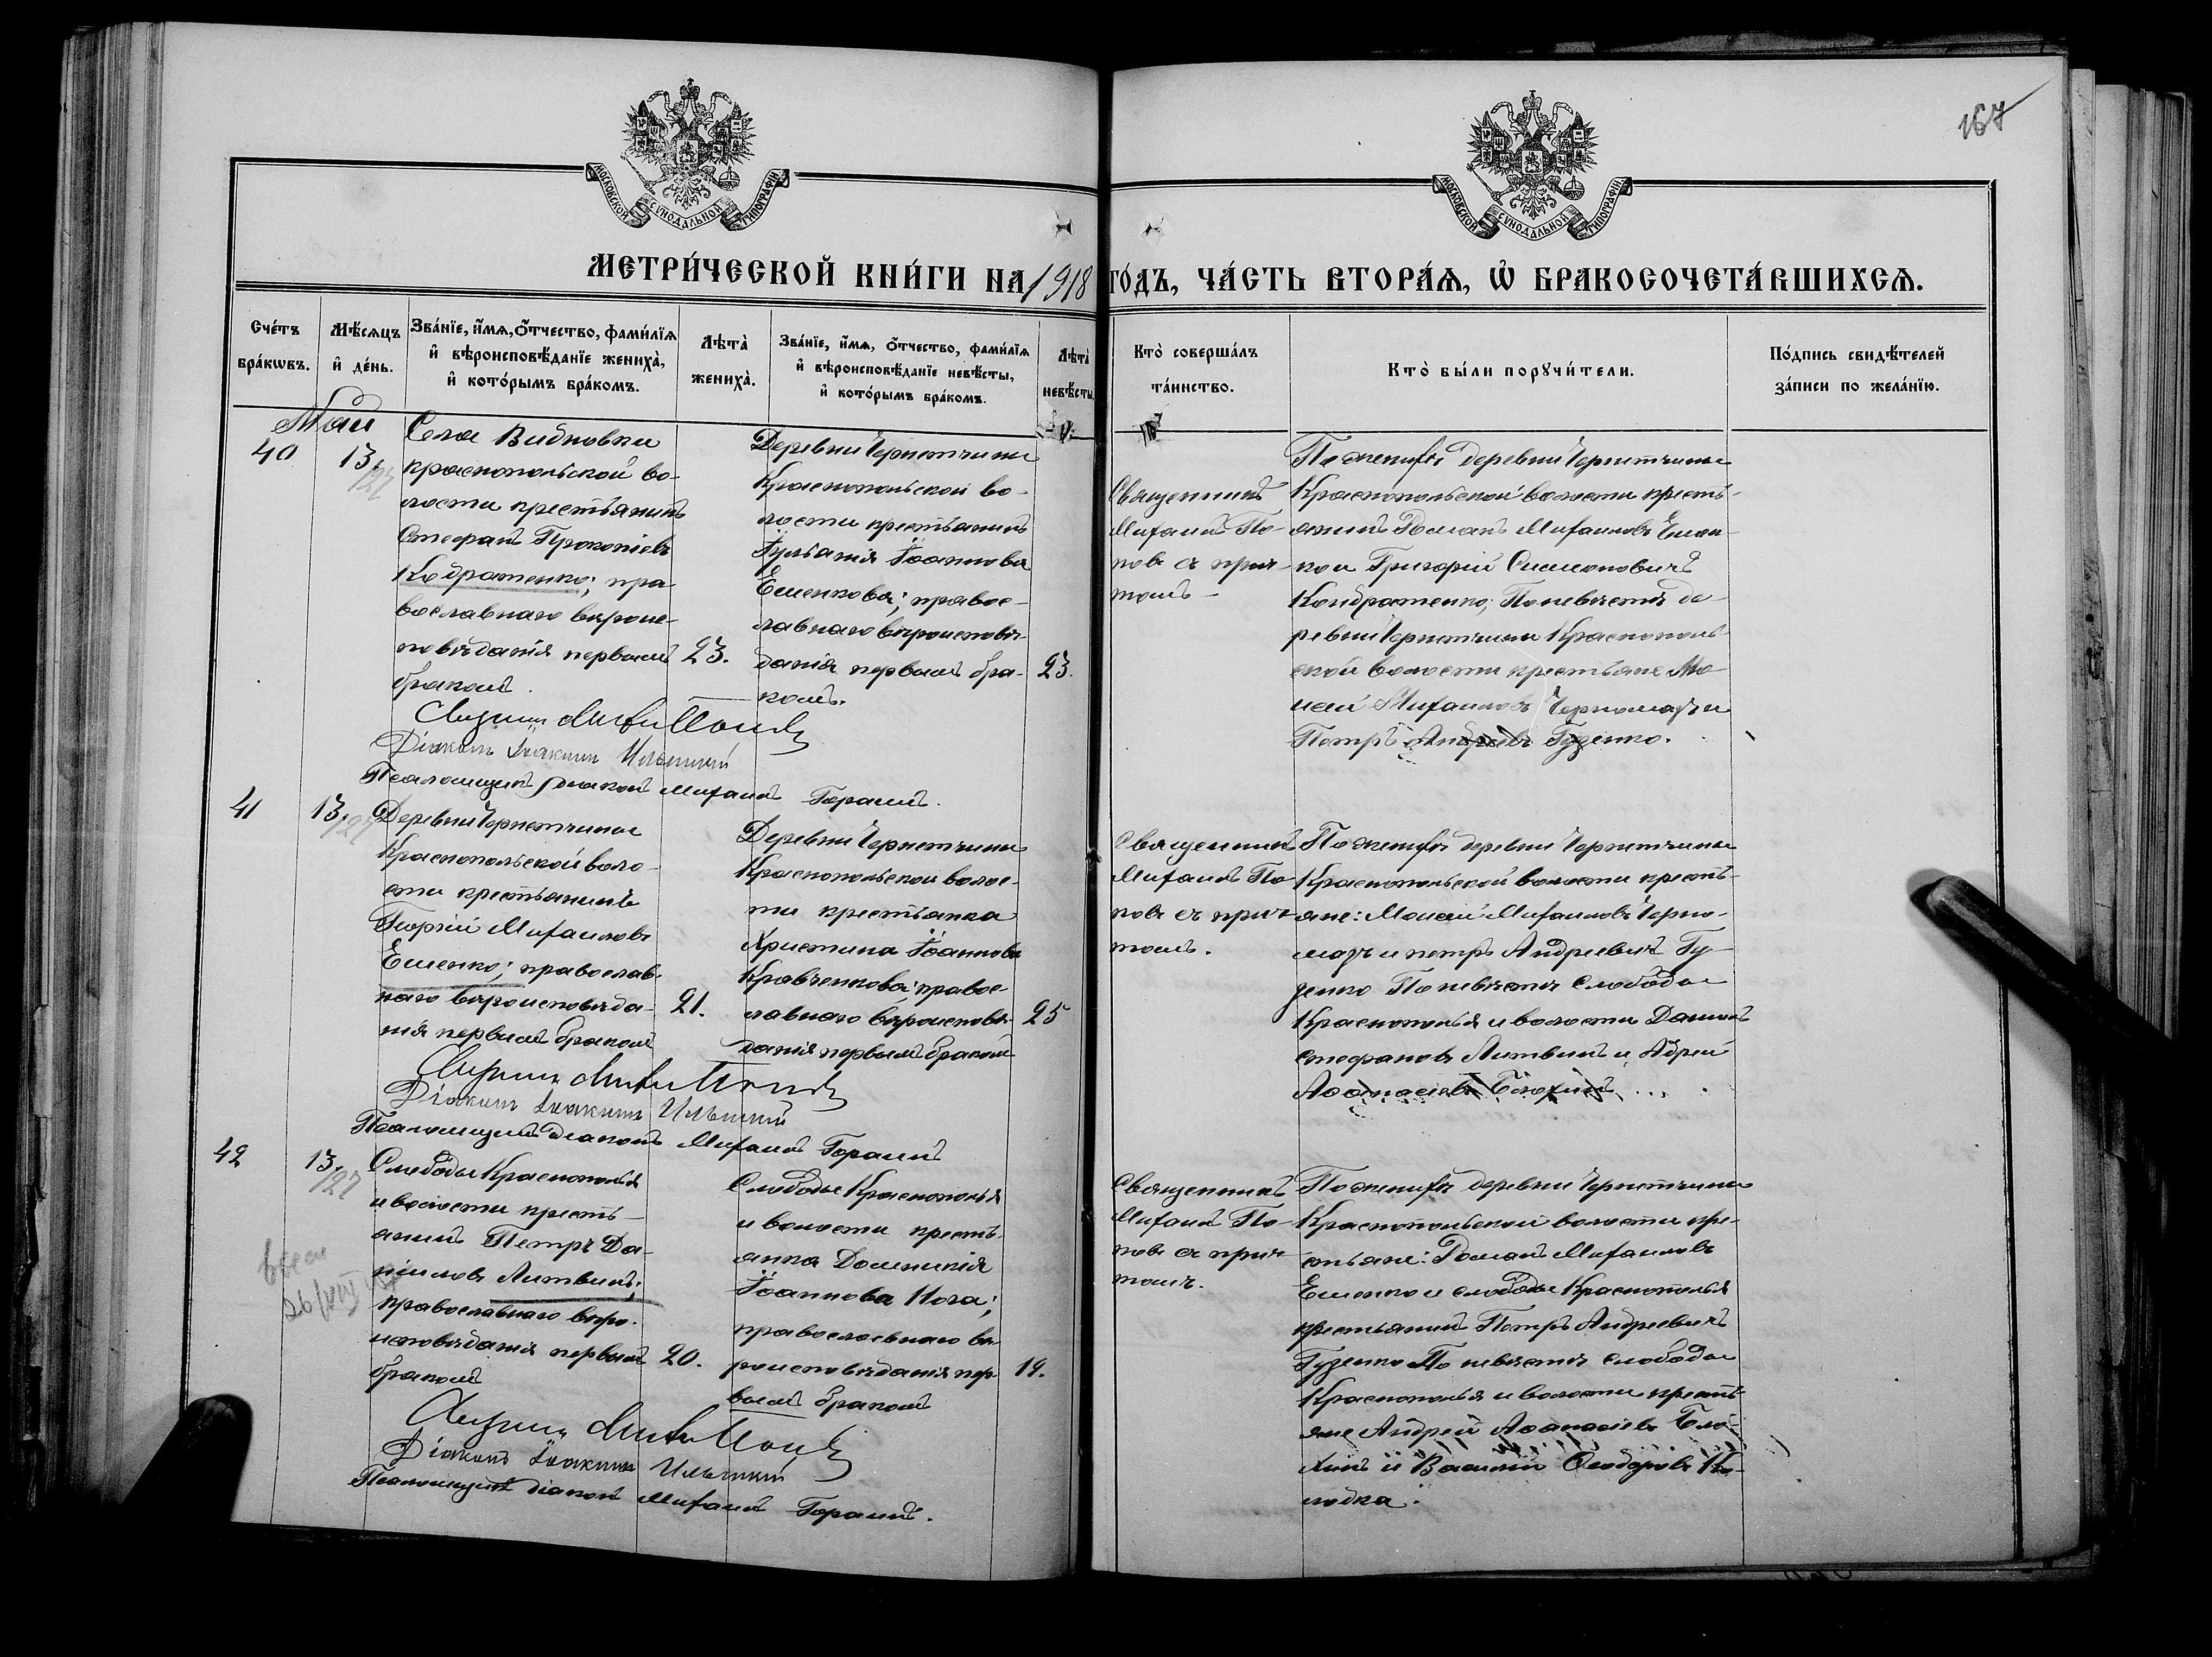 167
МОСКОВСКОЙ СѴНОДАЛЬНОЙ ТИПОГРАФІИ
МОСКОВСКОЙ СѴНОДАЛЬНОЙ ТИПОГРАФІИ
МЕТРИ́ЧЕСКОЙ КНИ́ГИ НА 1918 ГО́ДЪ, ЧА́СТЬ ВТОРА́Ѧ, Ѡ҆ БРАКОСОЧЕТА́ВШИХСѦ.
Сче́тъ бра́кѡвъ.
Мѣ́сѧцъ и҆ де́нь.
Зва́нїе, и҆́мѧ, ѻ҆́тчество, фами́лїѧ и҆ вѣроисповѣ́данїе жениха̀, и҆ кото́рымъ бра́комъ.
Лѣта̀ жениха̀.
Зва́нїе, и҆́мѧ, ѻ҆́тчество, фами́лїѧ и҆ вѣроисповѣ́данїе невѣ́сты, и҆ кото́рымъ бра́комъ.
Лѣта̀ невѣ́сты.
Кто̀ соверша́лъ та́инство.
Кто̀ бы́ли порꙋчи́тели.
По́дпись свидѣ́телей за́писи по жела́нїю.
Май
40
13/27
Села Видновки
краснопольской во-
лости крестьянинъ
Стефанъ Прокопіевъ
Кодратенко; пра-
вославнаго вѣроис-
повѣданія первымъ
бракомъ.
23.
Деревни Чернетчины
Краснопольской во-
лости крестьанинъ
Іульанія Іоаннова
Ещенкова; правос-
лавнаго вѣроисповѣ-
данія первымъ бра-
комъ.
23.
Священникъ
Михаилъ По-
повъ съ прич-
томъ
По женихѣ деревни Чернетчины
Краснопольской волости кресть-
янинъ Романъ Михаиловъ Ещен-
ко и Григорій Симеоновичъ
Кондратенко; По невѣстѣ де-
ревни Чернетчини Краснополь-
ской волости крестьяне Мо-
исей Михаиловъ Черномазъ и
Петръ Андреевъ Гузенко.
Діаконъ Іоакимъ Ильинскій
Псаломщикъ діаконъ Михаилъ Гораинъ.
41
13/27
Деревни Чернетчины
Краснопольской воло-
сти крестьянинъ
Георгій Михаиловъ
Ещенко; православ-
наго вѣроисповѣда-
нія первымъ бракомъ
21.
Деревни Чернетчини
Краснопольской волос-
ти крестьянка
Христина Іоаннова
Кравченкова; правос-
лавнаго вѣроисповѣ-
данія первымъ бракомъ
25
Священникъ
Михаилъ По-
повъ съ прич-
томъ.
По женихѣ деревни Чернетчины
Краснопольской волости кресть-
яне: Моисей Михаиловъ Черно-
мазъ и петръ Андреевичъ Гу-
зенко По невѣстѣ Слободы
Краснополья и волости Даниилъ
стефановъ Литвинъ и Адрей
Аѳанасіевъ Блохинъ
Діаконъ Іоакимъ Ильинскій
Псаломщикъ діаконъ Михаилъ Гораинъ
42
13/27
Слободы Краснополья
и волости кресть-
янинъ Петръ Да-
ніиловъ Литвинъ;
православнаго вѣро-
исповѣданія первымъ
бракомъ
20.
Слободы Краснополья
и волости кресть-
янка Домникія
Іоаннова Нога;
православнаго вѣ-
роисповѣданія пер-
вымъ бракомъ
19.
Священникъ
Михаилъ По-
повъ съ прич-
томъ.
По женихѣ деревни Чернетчини
Краснопольской волости кре-
стьяне: Романъ Михаиловъ
Ещенко и слободы Краснополья
крестьянинъ Петръ Андреевичъ
Гузенко По невѣстѣ слободы
Краснополья и волости кресть-
яне Андрей Аѳанасіевъ Бло-
хинъ и Василій Ѳеодоровъ Ко-
лодка.
Діаконъ Іоакимъ Ильинскій
Псаломщикъ діаконъ Михаилъ Гораинъ.